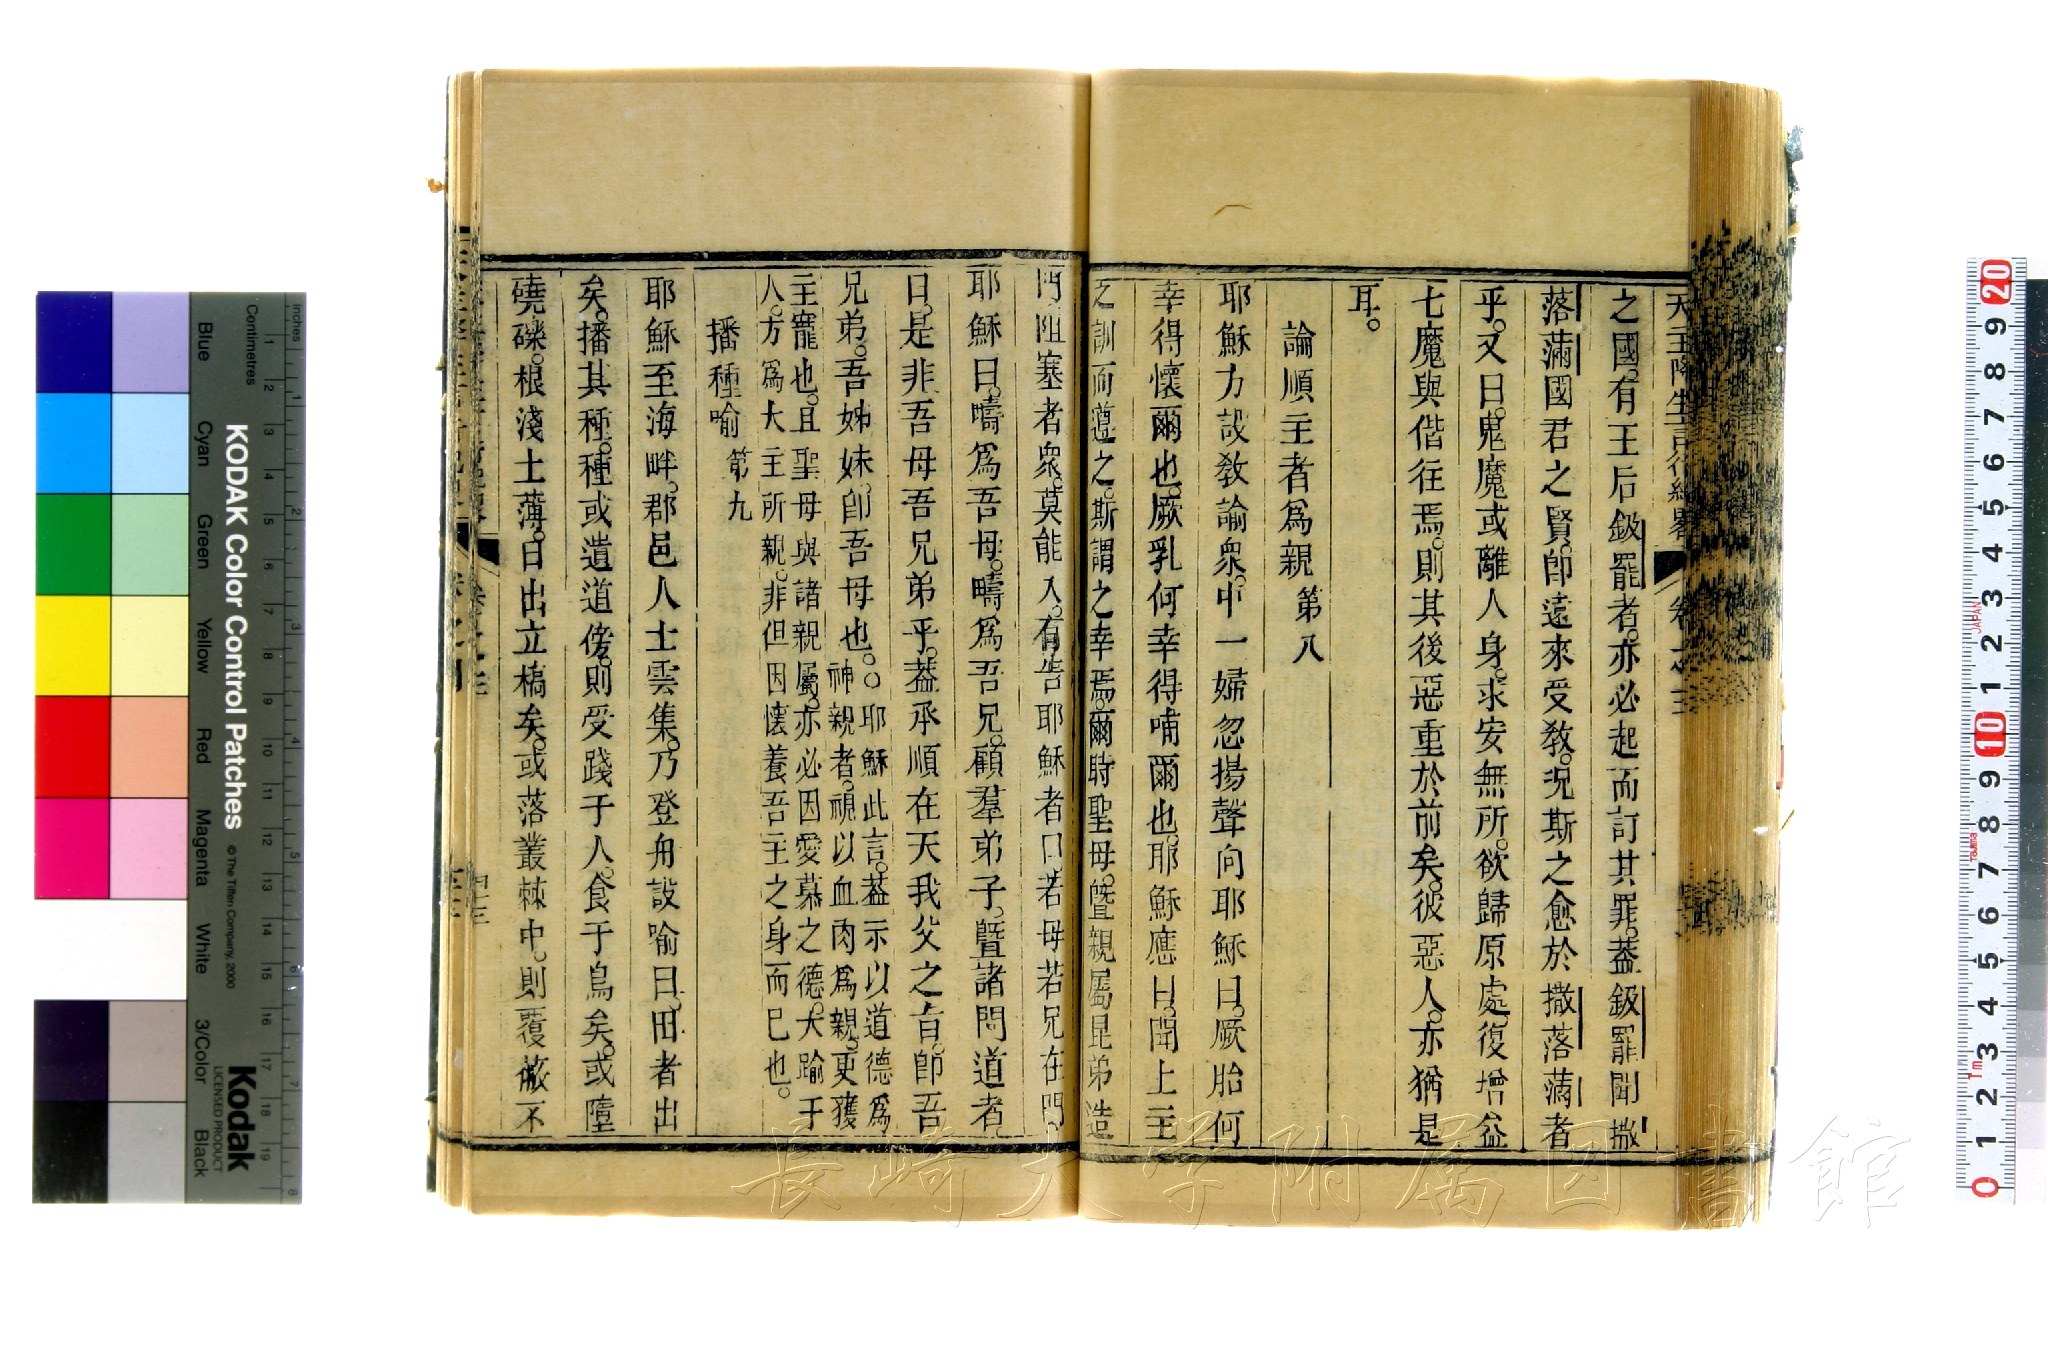 天主降生言行紀畧 卷之三
之國。有王后鈒罷者。亦必起而訂其罪。葢鈒罷聞撒
落滿國君之賢。卽遠來受教。况斯之愈於撒落滿者
乎。又曰。鬼魔或離人身。求安無所。欲歸原處。復增益
七魔與偕往焉。則其後惡重於前矣。彼惡人。亦猶是
耳。
論順主者爲親 第八
耶穌方設教論衆。中一婦忽揚聲向耶穌曰。厥胎何
幸得懷爾也。厥乳何幸得哺爾也。耶穌應曰。聞上主
之訓而遵之。斯謂之幸焉。爾時聖母。曁親屬昆弟造
門。阻塞者衆。莫能入。有告耶穌者曰。若母若兄在門。
耶穌曰。疇爲吾母。疇爲吾兄。顧羣弟子。曁諸問道者。
曰。是非吾母吾兄弟乎。葢承順在天我父之旨。卽吾
兄弟。吾姊妹。卽吾母也。○耶穌此言。葢示以道德爲
神親者。視以血肉爲親。更獲
主寵也。且聖母與諸親屬。亦必因愛慕之德。大踰于
人。方爲大主所親。非但因懷養吾主之身而已也。
播種喻 第九
耶穌至海畔。郡邑人士雲集。乃登舟設喻曰。田者出
矣。播其種。種或遺道傍。則受踐于人。食于鳥矣。或墮
磽磏。根淺土薄。日出立槁矣。或落叢棘中。則覆蔽不
長崎大学附属図書館
KODAK Color Control Patches
© The Tiffen Company, 2000
Kodak
LICENSED PRODUCT
Inches
Centimetres
Blue
Cyan
Green
Yellow
Red
Magenta
White
3/Color
Black